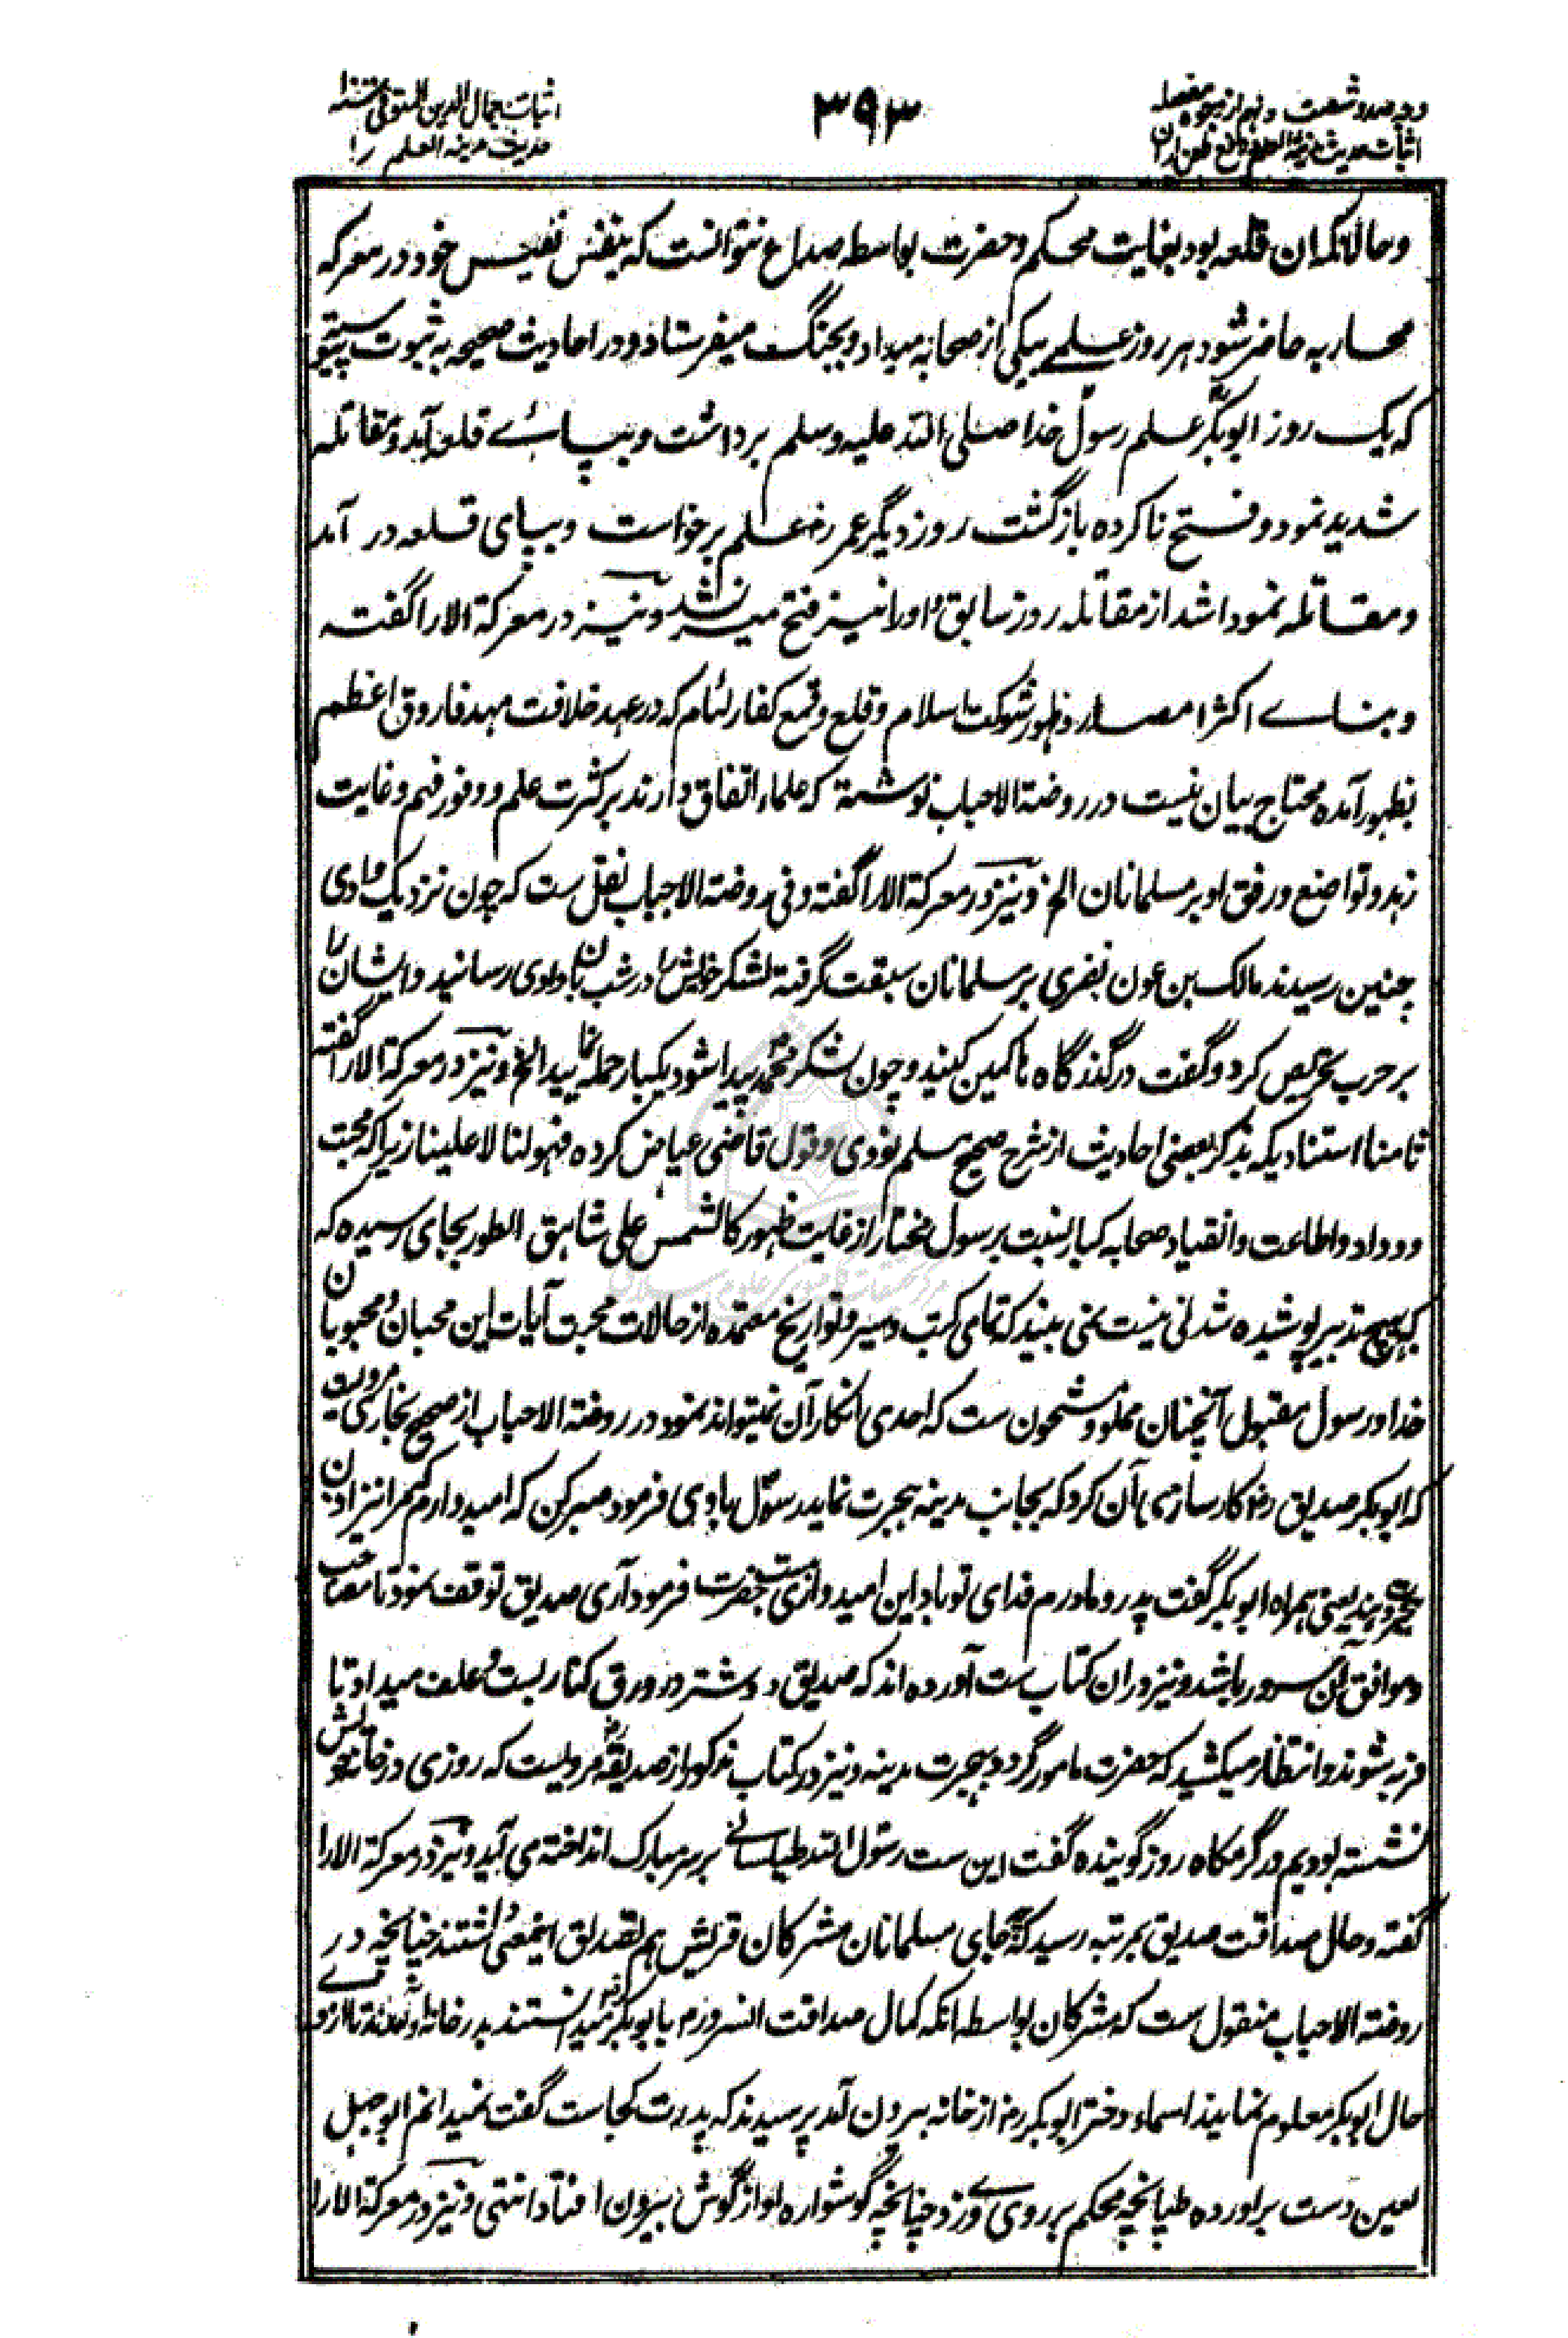 وجه صد و شصت و نهم از وجوه مفصله
اثبات حدیث مدینة العلم
۳۹۳
اثبات جمال الدین المتوفی
حدیث مدینة العلم را
و حالانکه ان قلعه بود بغایت محکم و حضرت بواسطه صداع نتوانست که بنفس نفیس خود در معرکه
محاربه حاضر شود هر روز علمے بیکی از صحابه میداد و بجنگ میفرستاد و در احادیث صحیحه به ثبوت پیوسته
که یک روز ابوبکر علم رسول خدا صلی الله علیه وسلم برداشت و بپاےئ قلعه آمد و مقاتله
شدید نمود و فتح ناکرده بازگشت روز دیگر عمر رض علم برخواست و بپای قلعه در آمد
و مقاتله نمود اشد از مقاتله روز سابق و اورا نیز فتح میسر نشد و نیز در معرکة الارا گفته
و بناے اکثر امصار و ظهور شوکت اسلام و قلع و قمع کفار لئام که در عهد خلافت مهد فاروق اعظم
بظهور آمده محتاج بیان نیست در روضة الاحباب نوشته که علماء اتفاق دارند بر کثرت علم و وفور فهم و غایت
زهد و تواضع و رفق او بر مسلمانان الخ و نیز در معرکة الارا گفته و فی روضة الاحباب نقل ست که چون نزدیک وادی
چنین رسیدند مالک بن عون نفری بر مسلمانان سبقت گرفته لشکر خویش را در شب بان وادی رسانید و ایشان را
بر حرب تحریص کرد و گفت در گذرگاه ها کمین کنید و چون لشکر محمد پیدا شود یکبار حمله نمایید الخ و نیز در معرکة الارا گفته
ثامنا استنادیکه بذکر بعضی احادیث از شرح صحیح مسلم نووی و قول قاضی عیاض کرده فهو لنا لا علینا زیراکه محبت
و وداد و اطاعت و انقیاد صحابه کبار نسبت برسول مختار از غایت ظهور کالشمس علی شاهق الطور بجای رسیده که
که بهیچ تدبیر پوشیده شدنی نیست نمی بینید که تمامی کتب و سیر و تواریخ معتمده از حالات محبت آیات این محبان و محبوبان
خدا و رسول مقبول آنچنان مملو و مشحون ست که احدی انکار آن نمیتواند نمود در روضة الاحباب از صحیح بخاری مرویست
که ابوبکر صدیق رض کارسازی آن کرد که بجانب مدینه هجرت نماید رسول باوی فرمود صبر کن که امیدوارم که مرا نیز اذن
هجرت دهند یعنی همراه ابوبکر گفت پدر و مادرم فدای تو باد این امیدواری هست حضرت فرمود آری صدیق توقف نمود تا مصاحب
و موافق آن سرور باشد و نیز دران کتاب ست آورده اند که صدیق دو شتر در ورق کنار بست و علف میداد تا
فربه شوند و انتظار میکشید که حضرت مامور گردد بهجرت مدینه و نیز در کتاب مذکور از صدیقه رض مرویست که روزی در خانه خویش
نشسته بودیم در گرمگاه روز گوینده گفت این ست رسول الله طیلسانے بر سر مبارک انداخته می آید و نیز در معرکة الارا
گفته و حال صداقت صدیق بمرتبه رسید که بجای مسلمانان مشرکان قریش هم تصدیق اینمعنی داشتند چنانچه در
روضة الاحباب منقول ست که مشرکان بواسطه انکه کمال صداقت انسرورم با ابوبکر میدانستند بدر خانه او آمدند تا از وے
حال ابوبکر معلوم نمایند اسماء دختر ابوبکر رض از خانه بیرون آمد پرسیدند که پدرت کجاست گفت نمیدانم ابوجهل
لعین دست برآورده طپانچه محکم بر روی وے زد چنانچه گوشواره او از گوش بیرون افتاد انتهی و نیز در معرکة الارا